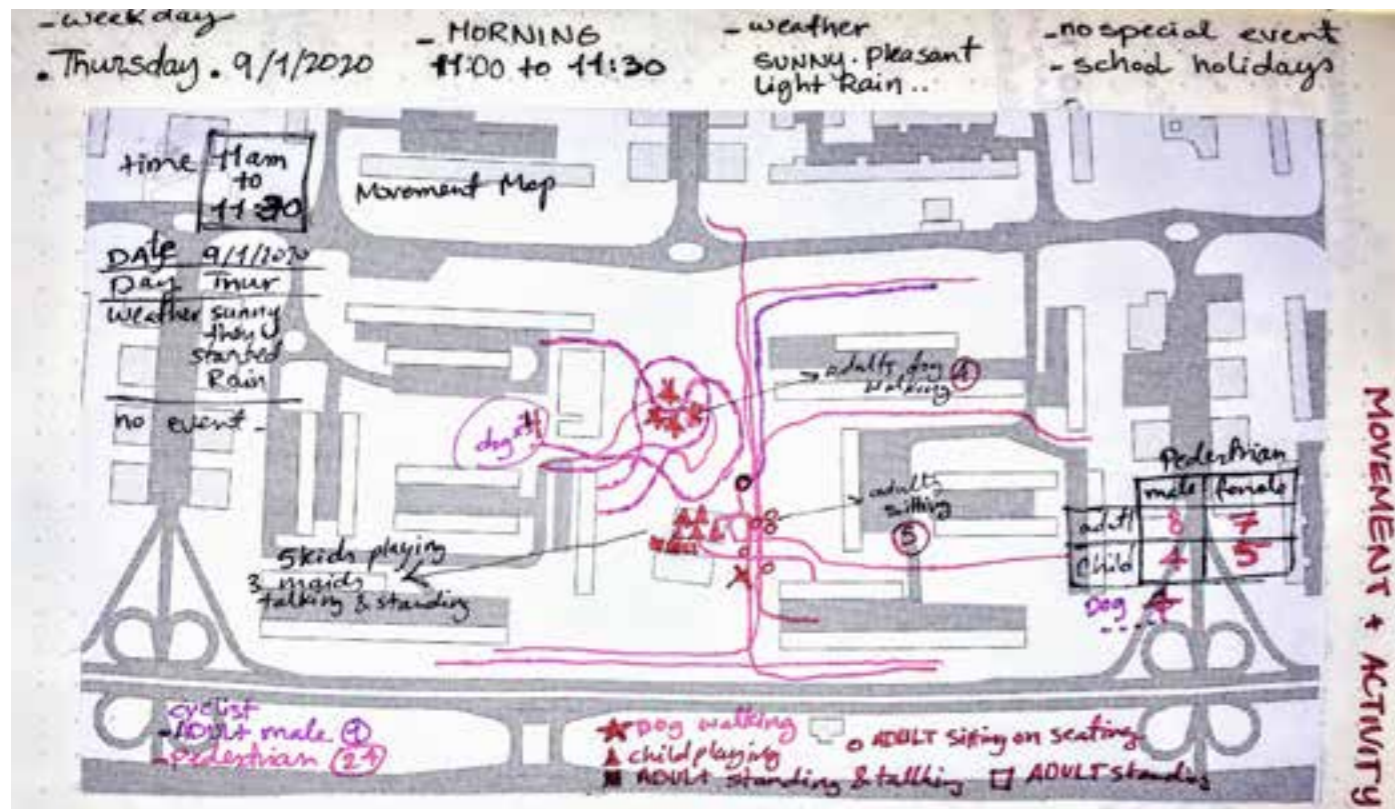 - weekday
. Thursday . 9/1/2020
- MORNING
11:00 to 11:30
- weather
SUNNY. Pleasant
Light Rain..
- no special event
- school holidays
time 11am
to
11:30
Movement Map
DAte 9/1/2020
Day Thur
Weather sunny
they
started
Rain
no event -
adults dog
walking 4
dog
adults
sitting
5
5 kids playing
3 maids
talking & standing
Pedestrian
male female
adult 8 7
Child 4 5
Dog 4
MOVEMENT + ACTIVITY
cyclist
- ADULT male 1
- Pedestrian 24
DOG walking
child playing
ADULT standing & tallking
ADULT sitting on seating
ADULT standing